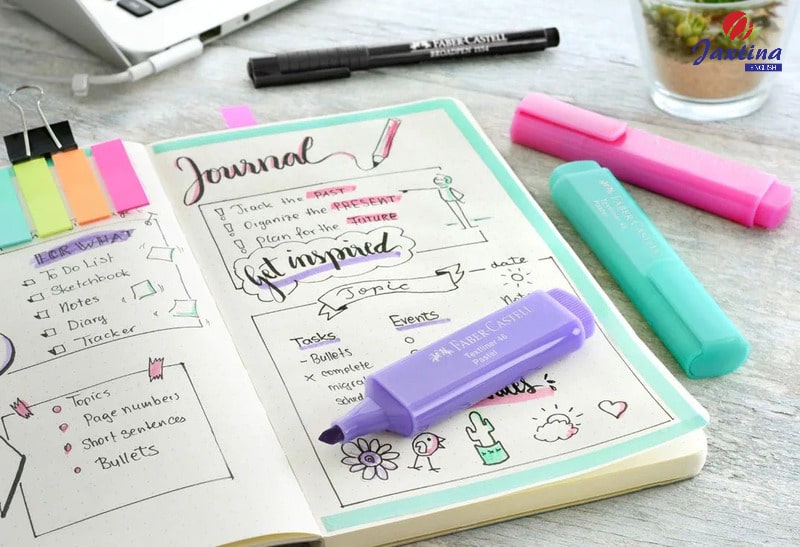 FOR WHAT
To Do List
Sketchbook
Notes
Diary
Tracker
Topics
Page numbers
Short sentences
Bullets
Journal
! Track the PAST
! Organize the PRESENT
! Plan for the FUTURE
Get inspired
Topic
date
Tasks
Events
- Bullets
x complete
FABER-CASTELL
BROADPEN 1554
FABER-CASTELL
Textliner 46
Pastel
FABER-CASTELL
Jaxtina
ENGLISH